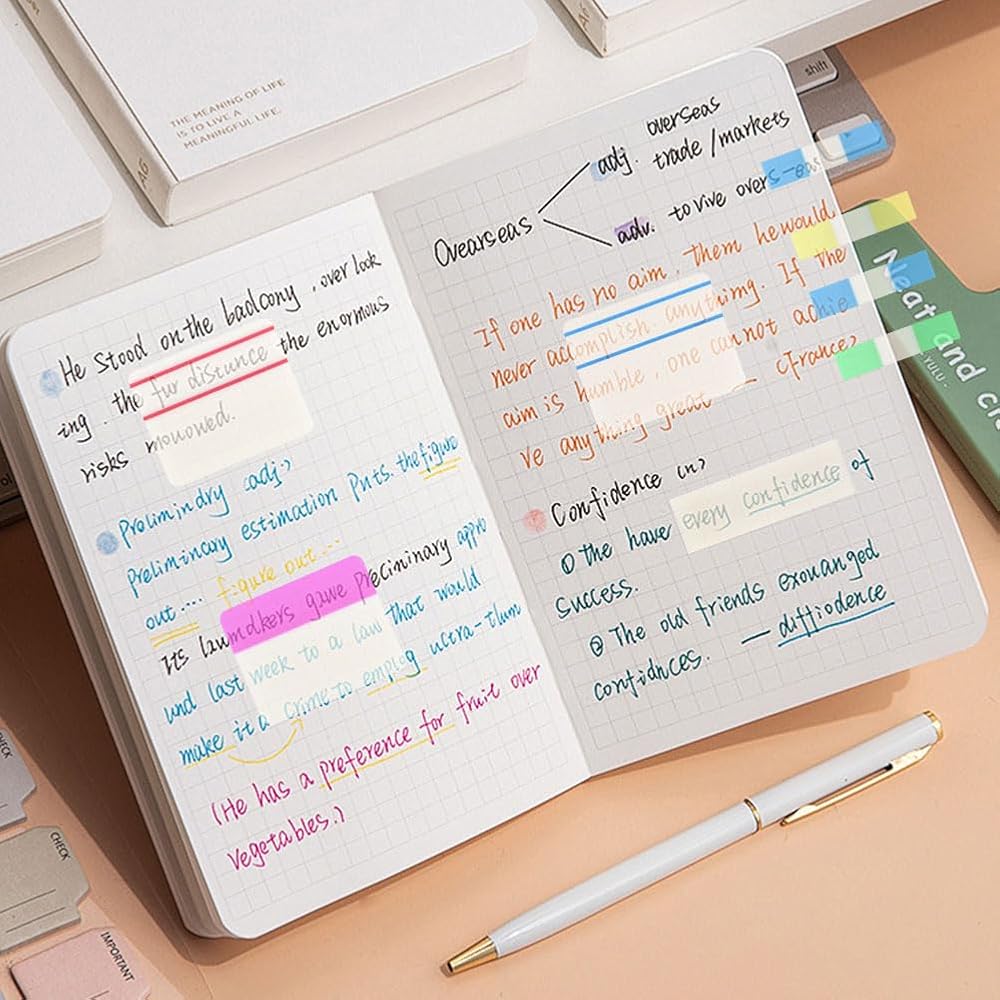 THE MEANING OF LIFE
IS TO LIVE A
MEANINGFUL LIFE.
A6
He stood on the badcony , over look
ing . the fur distunce the enormous
risks mouowed.
Prolimindry (adj.)
Preliminary estimation puts. the figure
out .... figure out ...
Its lawmdkers gawe precininary appro
und last week to a law that would
make it a crime to employ uctra-tlum
(He has a preference for fruit over
vegetables.)
Ovearseas
adj. overseas
trade / markets
adv. to vive overs-eas
If one has no aim , them he would
never accomplish anything. If the
aim is humble , one cannot achie
ve anything great — (France)
Confidence (n)
① the have every confidence of
success.
② The old friends exouanged
confidnces. — diffiodence
shift
Neat and cl
YULU
CHECK
CHECK
IMPORTANT